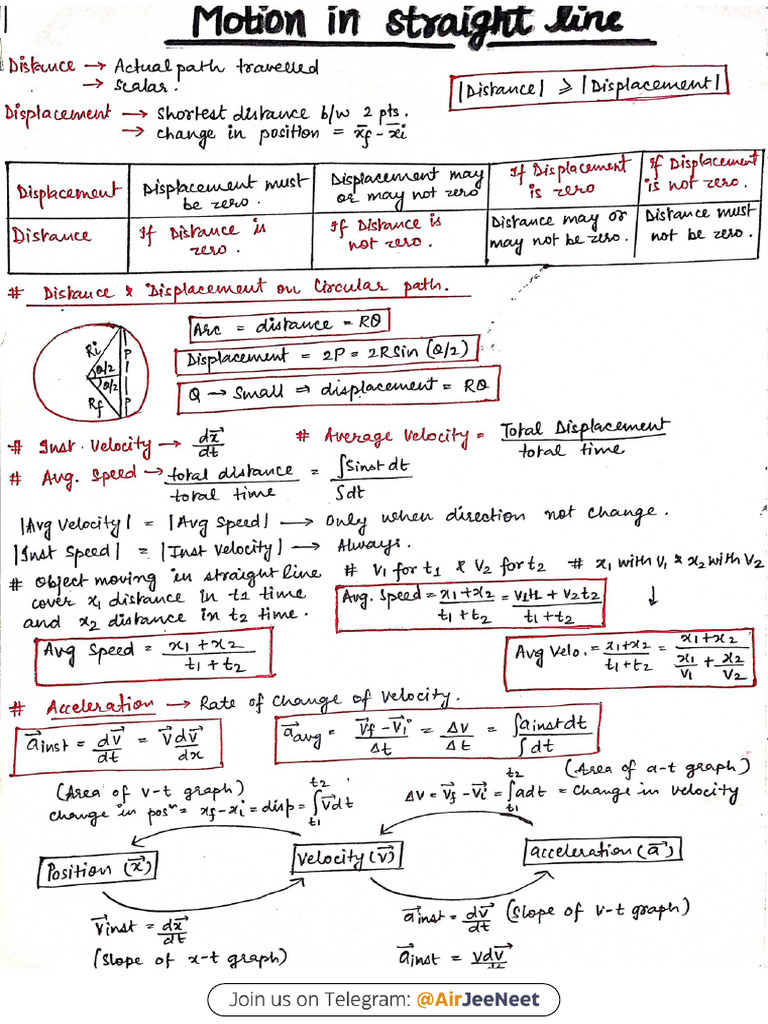 Motion in straight line
Distance → Actual path travelled
→ scalar.
|Distance| ⩾ |Displacement|
Displacement → shortest distance b/w 2 pts.
→ change in position = x⃗f - x⃗i
Displacement | Displacement must be zero. | Displacement may or may not zero | If Displacement is zero | If Displacement is not zero.
Distance | If Distance is zero. | If Distance is not zero. | Distance may or may not be zero. | Distance must not be zero.
# Distance & Displacement on Circular path.
Ri θ/2 θ/2 Rf P P
Arc = distance = Rθ
Displacement = 2P = 2R sin (θ/2)
θ → small ⇒ displacement = Rθ
# Inst. Velocity → dx⃗/dt
# Average Velocity = Total Displacement / total time
# Avg. Speed → total distance / total time = ∫Sinst dt / ∫dt
|Avg Velocity| = |Avg Speed| → Only when direction not change.
|Inst Speed| = |Inst Velocity| → Always.
# Object moving in straight line
cover x1 distance in t1 time
and x2 distance in t2 time.
Avg Speed = x1 + x2 / t1 + t2
# V1 for t1 & V2 for t2
Avg. Speed = x1+x2 / t1+t2 = V1t1 + V2t2 / t1+t2
# x1 with V1 & x2 with V2
↓
Avg Velo. = x1+x2 / t1+t2 = x1+x2 / x1/V1 + x2/V2
# Acceleration → Rate of change of velocity.
a⃗inst = dv⃗/dt = v⃗dv⃗/dx
a⃗avg = V⃗f-V⃗i / Δt = ΔV/Δt = ∫ainst dt / ∫dt
(Area of v-t graph)
change in posⁿ = xf-xi = disp = ∫t1 t2 v⃗dt
(Area of a-t graph)
ΔV = V⃗f - V⃗i = ∫t1 t2 adt = change in velocity
Position (x⃗)
Velocity (v⃗)
acceleration (a⃗)
V⃗inst = dx⃗/dt
(Slope of x-t graph)
a⃗inst = dv⃗/dt (Slope of v-t graph)
a⃗inst = vdv⃗
Join us on Telegram: @AirJeeNeet